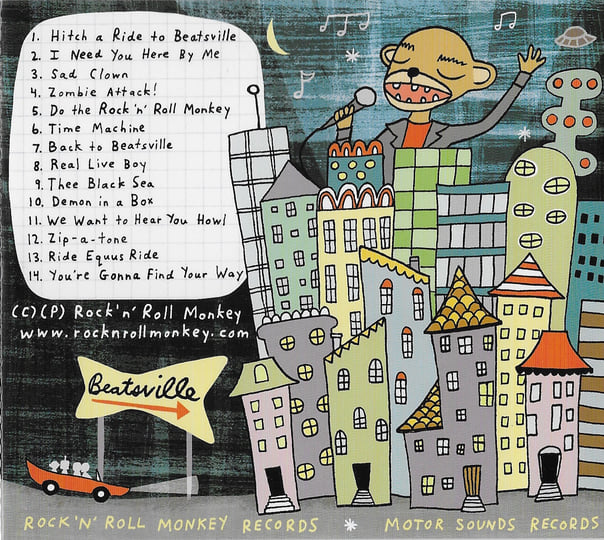 1. Hitch a Ride to Beatsville
2. I Need You Here By Me
3. Sad Clown
4. Zombie Attack!
5. Do the Rock'n'Roll Monkey
6. Time Machine
7. Back to Beatsville
8. Real Live Boy
9. Thee Black Sea
10. Demon in a Box
11. We Want to Hear You Howl
12. Zip-a-tone
13. Ride Equus Ride
14. You're Gonna Find Your Way
(C)(P) Rock'n' Roll Monkey
www.rocknrollmonkey.com
Beatsville
ROCK'N' ROLL MONKEY RECORDS * MOTOR SOUNDS RECORDS